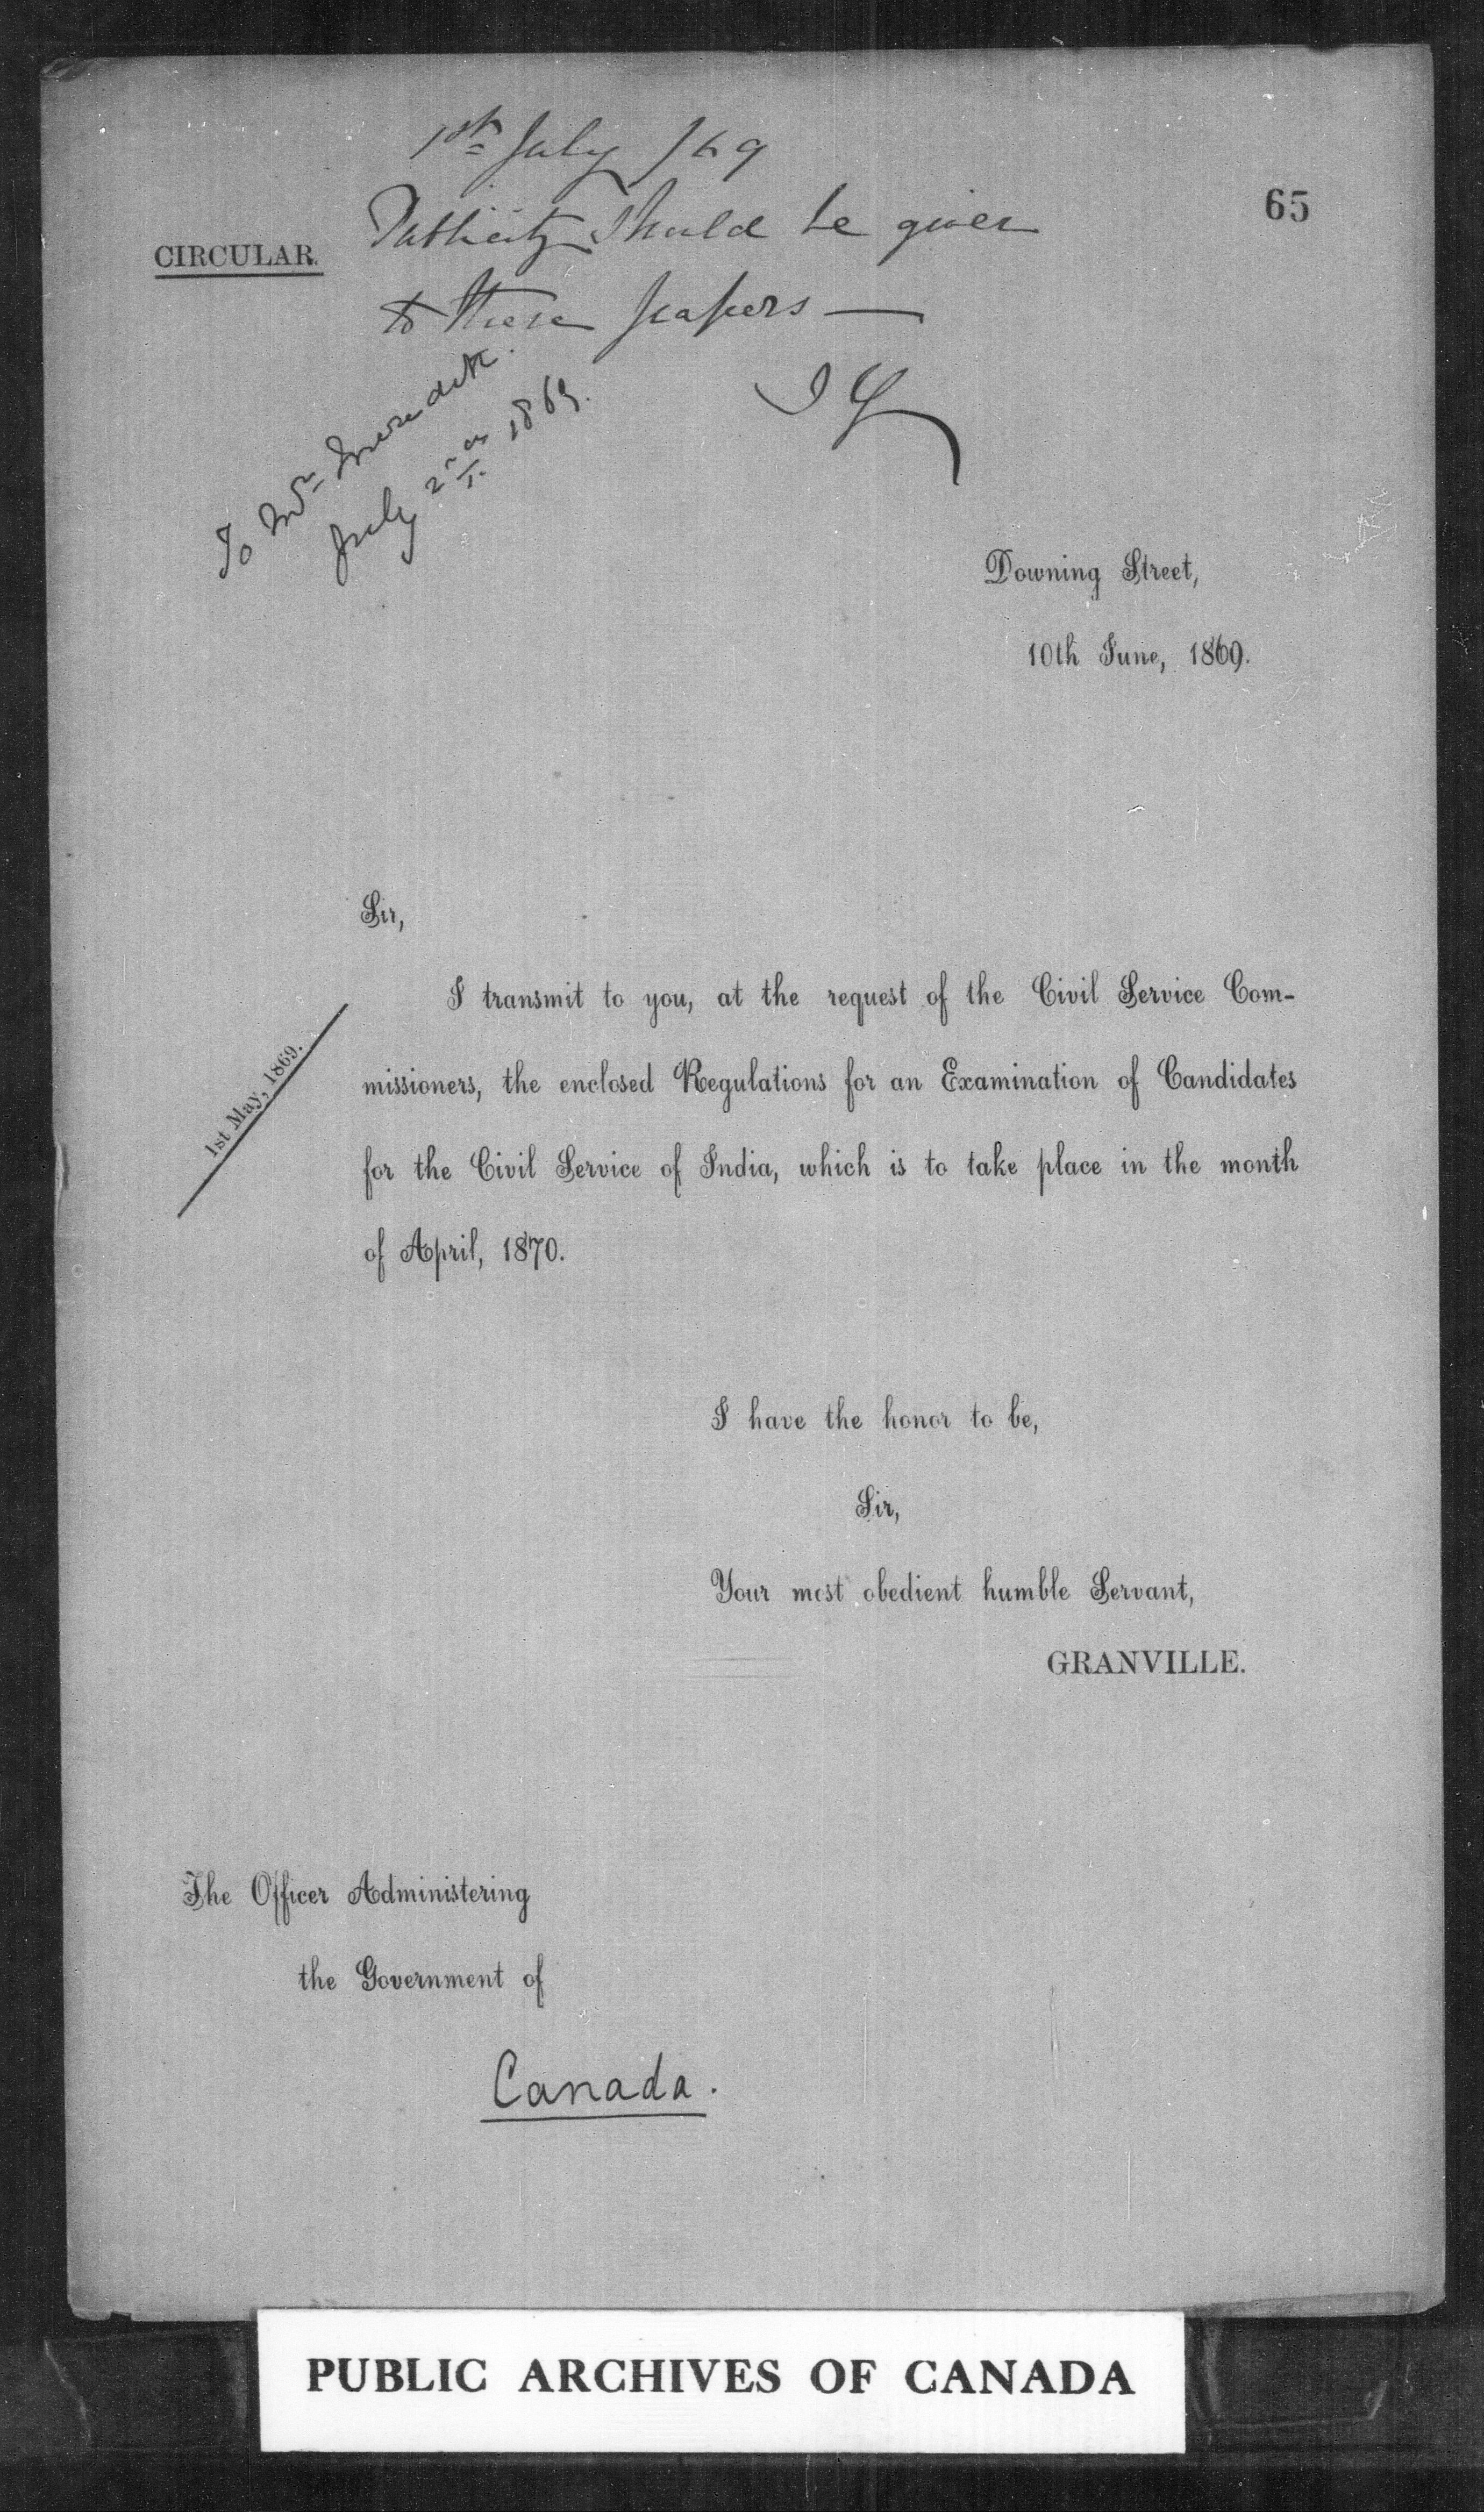 1st July /69
Publicity should be given
to these papers —
JY
65
CIRCULAR.
To Mr Meredith.
July 2nd 1869.
Downing Street,
10th June, 1869.
Sir,
I transmit to you, at the request of the Civil Service Com-
missioners, the enclosed Regulations for an Examination of Candidates
for the Civil Service of India, which is to take place in the month
of April, 1870.
1st May, 1869.
I have the honor to be,
Sir,
Your most obedient humble Servant,
GRANVILLE.
The Officer Administering
the Government of
Canada.
PUBLIC ARCHIVES OF CANADA